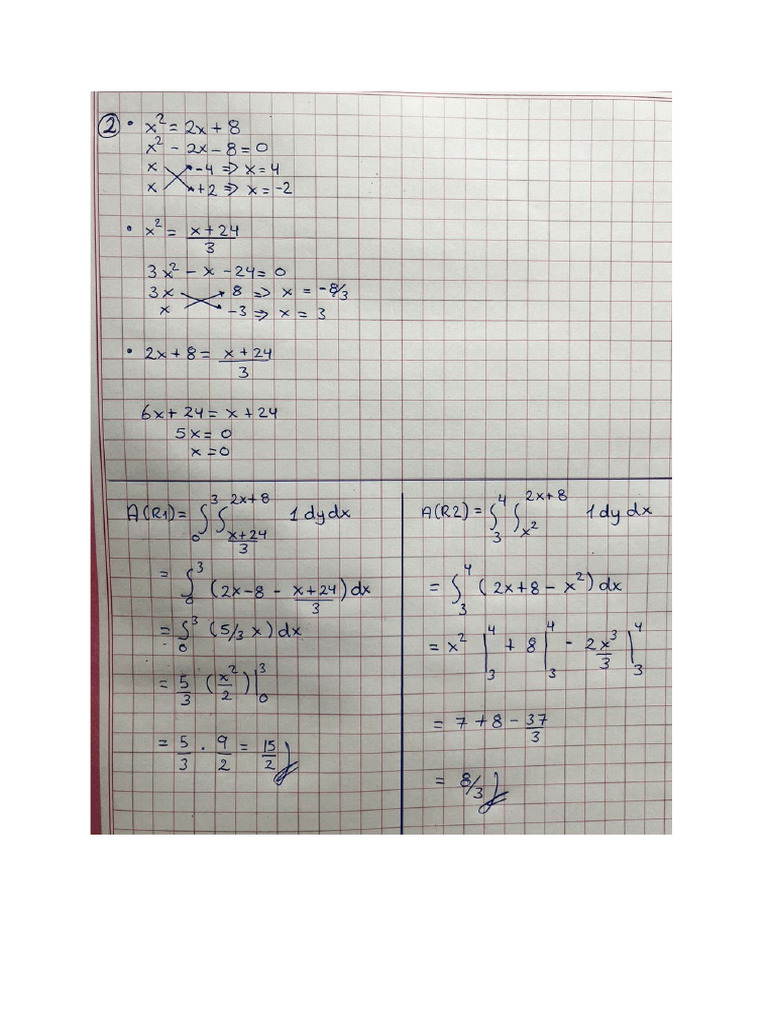 ② • x² = 2x + 8
x² - 2x - 8 = 0
x -4 ⇒ x = 4
x +2 ⇒ x = -2
• x² = (x + 24)/3
3x² - x - 24 = 0
3x 8 ⇒ x = -8/3
x -3 ⇒ x = 3
• 2x + 8 = (x + 24)/3
6x + 24 = x + 24
5x = 0
x = 0
A(R1) = ∫₀³ ∫_{(x+24)/3}^{2x+8} 1 dy dx
= ∫₀³ (2x - 8 - (x+24)/3) dx
= ∫₀³ (5/3 x) dx
= 5/3 (x²/2) |₀³
= 5/3 . 9/2 = 15/2
A(R2) = ∫₃⁴ ∫_{x²}^{2x+8} 1 dy dx
= ∫₃⁴ (2x + 8 - x²) dx
= x² |₃⁴ + 8 |₃⁴ - 2x³/3 |₃⁴
= 7 + 8 - 37/3
= 8/3